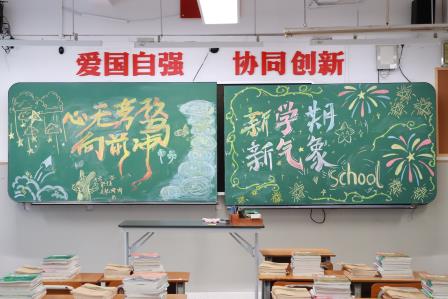 爱国自强 协同创新
心无旁骛
向前冲
新学期
新气象
School